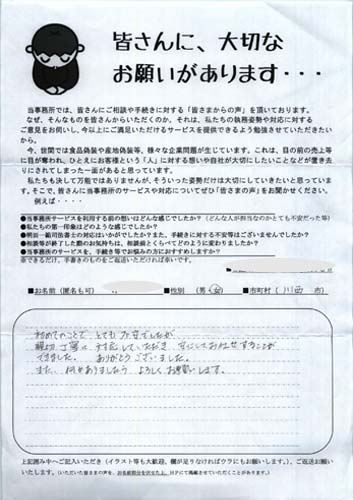 皆さんに、大切な
お願いがあります・・・
当事務所では、皆さんにご相談や手続きに対する「皆さまからの声」を頂いております。
なぜ、そんなものを皆さんからいただくのか。それは、私たちの執務姿勢や対応に対する
ご意見をお伺いし、今以上にご満足いただけるサービスを提供できるよう勉強させていただきたい
から。
今、世間では食品偽装や産地偽装等、様々な企業問題が生じています。これは、目の前の売上等
に目が奪われ、ひとえにお客様という「人」に対する想いや自社が大切にしたいことなどが置き去
りにされてしまった一面があると思っています。
私たちも決して万能ではありませんが、そういった姿勢だけは大切にしていきたいと思っていま
す。そこで、皆さんに当事務所のサービスや対応についてぜひ「皆さまの声」をお聞かせください。
例えば・・・・
●当事務所サービスを利用する前の想いはどんな感じでしたか？（どんな人が担当なのかとても不安だった等）
●私たちの第一印象はどのような感じでしたか？
●司法書士の対応はいかがでしたか？また、手続きに対する不安等はございませんでしたか？
●相談等が終了した際のお気持ちは、相談前とくらべてどのように変わりましたか？
●当事務所のサービスを、手続き等でお悩みの方におすすめしますか？
※できるだけ、手書きのものをご返送いただければ幸いです。
■お名前（匿名も可） ■性別（男・女） ■市町村（川西 市）
初めてのことで とても不安でしたが
親切、丁寧に 対応していただき 安心しておまかせすることが
できました。 ありがとうございました。
また、何かありましたら よろしくお願いします。
上記囲み中へご記入いただき（イラスト等も大歓迎、欄が足りなければウラにもお願いします。）、ご返送お願い
いたします。（いただいた皆さまの声を、お名前部分を伏せた上、HPにて掲載させていただくことがあります。）